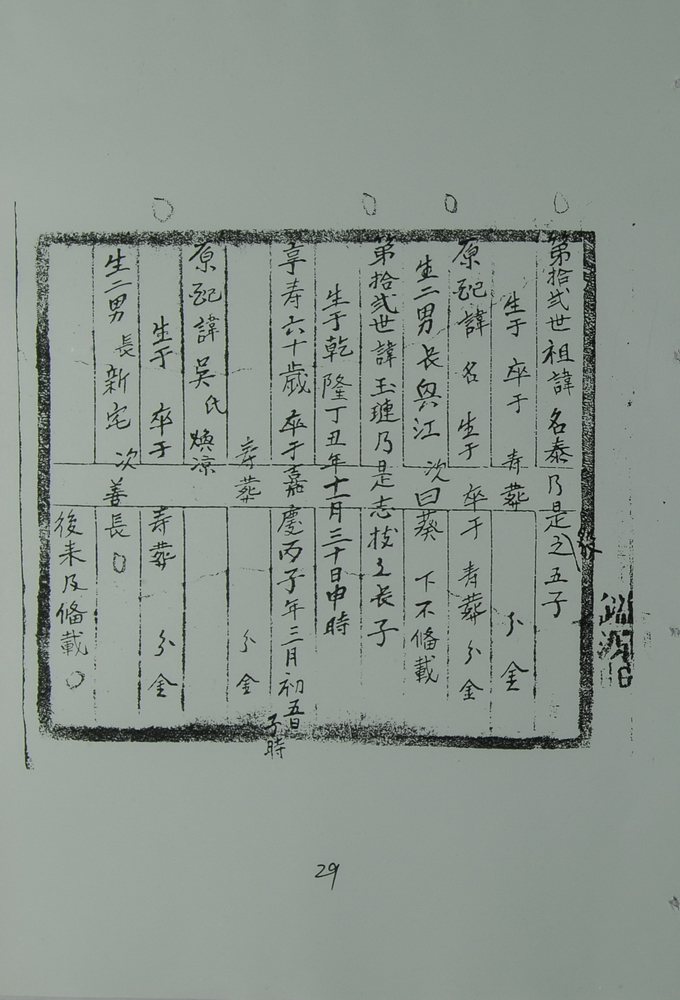 第拾弐世祖諱 名泰乃是之五子
生于 卒于 寿葬 分金
原配諱 名 生于 卒于 寿葬 分金
生二男 长與江 次曰葵 下不偹載
第拾弐世諱玉璉乃是志技之长子
生于乾隆丁丑年十一月三十日申時
享寿六十歳 卒于嘉慶丙子年三月初五日子時
寿葬 分金
原配諱吴氏 焕凉
生于 卒于 寿葬 分金
生二男 長新宅 次善長
後来及偹載
29